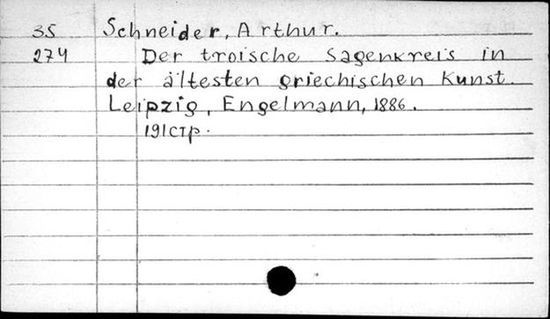 35 Schneider, Arthur.
274 Der troische Sagenkreis in
der ältesten griechischen Kunst.
Leipzig, Engelmann, 1886.
191 стр.